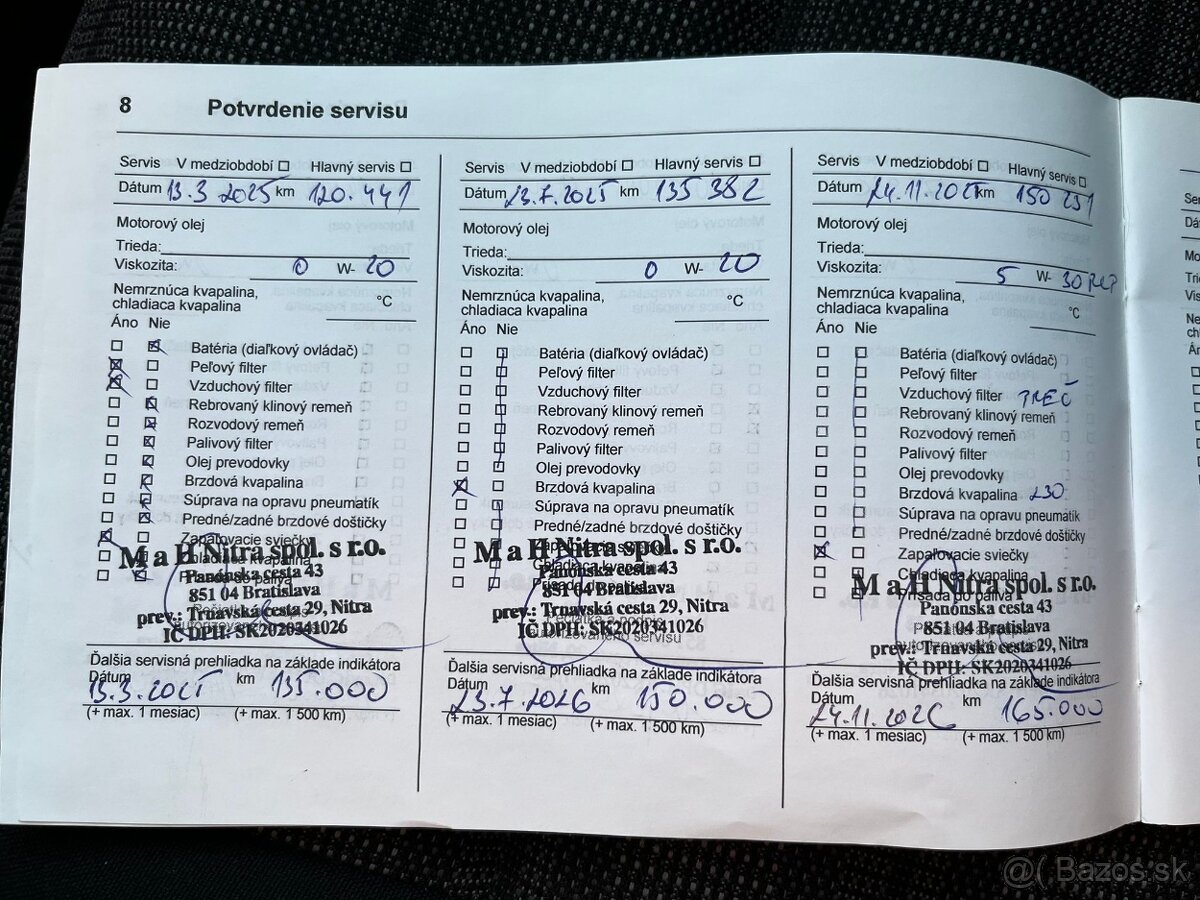 8 Potvrdenie servisu
Servis V medziobdobí Hlavný servis
Dátum 13.3 2025 km 120.441
Motorový olej
Trieda:
Viskozita: 0 W- 20
Nemrznúca kvapalina,
chladiaca kvapalina °C
Áno Nie
Batéria (diaľkový ovládač)
Peľový filter
Vzduchový filter
Rebrovaný klinový remeň
Rozvodový remeň
Palivový filter
Olej prevodovky
Brzdová kvapalina
Súprava na opravu pneumatík
Predné/zadné brzdové doštičky
Zapaľovacie sviečky
Chladiaca kvapalina
M a H Nitra spol. s r.o.
Panónska cesta 43
851 04 Bratislava
prev.: Trnavská cesta 29, Nitra
IČ DPH: SK2020341026
Ďalšia servisná prehliadka na základe indikátora
Dátum 13.3.202 km 135.000
(+ max. 1 mesiac) (+ max. 1 500 km)
Servis V medziobdobí Hlavný servis
Dátum 23.7.2025 km 135 382
Motorový olej
Trieda:
Viskozita: 0 W- 20
Nemrznúca kvapalina,
chladiaca kvapalina °C
Áno Nie
Batéria (diaľkový ovládač)
Peľový filter
Vzduchový filter
Rebrovaný klinový remeň
Rozvodový remeň
Palivový filter
Olej prevodovky
Brzdová kvapalina
Súprava na opravu pneumatík
Predné/zadné brzdové doštičky
Chladiaca kvapalina
M a H Nitra spol. s r.o.
Panónska cesta 43
851 04 Bratislava
prev.: Trnavská cesta 29, Nitra
IČ DPH: SK2020341026
autorizovaného servisu
Ďalšia servisná prehliadka na základe indikátora
Dátum 23.7.2026 km 150.000
(+ max. 1 mesiac) (+ max. 1 500 km)
Servis V medziobdobí Hlavný servis
Dátum 24.11.2025 km 150 251
Motorový olej
Trieda:
Viskozita: 5 W- 30
Nemrznúca kvapalina,
chladiaca kvapalina °C
Áno Nie
Batéria (diaľkový ovládač)
Peľový filter
Vzduchový filter
Rebrovaný klinový remeň
Rozvodový remeň
Palivový filter
Olej prevodovky
Brzdová kvapalina 230
Súprava na opravu pneumatík
Predné/zadné brzdové doštičky
Zapaľovacie sviečky
Chladiaca kvapalina
Prísada do paliva
M a H Nitra spol. s r.o.
Panónska cesta 43
851 04 Bratislava
prev.: Trnavská cesta 29, Nitra
IČ DPH: SK2020341026
Ďalšia servisná prehliadka na základe indikátora
Dátum 24.11.2026 km 165.000
(+ max. 1 mesiac) (+ max. 1 500 km)
Bazos.sk